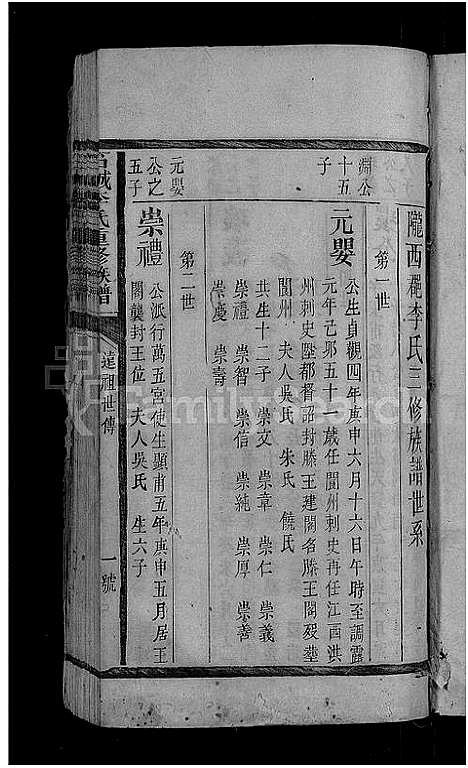 隴西郡李氏三修族譜世系
第一世
淵公
十五
子
元嬰
公生貞觀四年庚申六月十六日午時至調露
元年己卯五十一歲任閬州刺史再任江西洪
州刺史陞都督詔封滕王建閣名滕王閣歿塟
閬州 夫人吳氏 朱氏 饒氏
共生十二子 崇文 崇章 崇仁 崇義
崇禮 崇智 崇信 崇純 崇厚 崇善
崇慶 崇壽
第二世
元嬰
公之
五子
崇禮
公派行萬五宮使生顯甫五年庚申五月居王
閣襲封王位 夫人吳氏 生六子
城李氏重修族譜
遠祖世傳
一號
FamilySearch